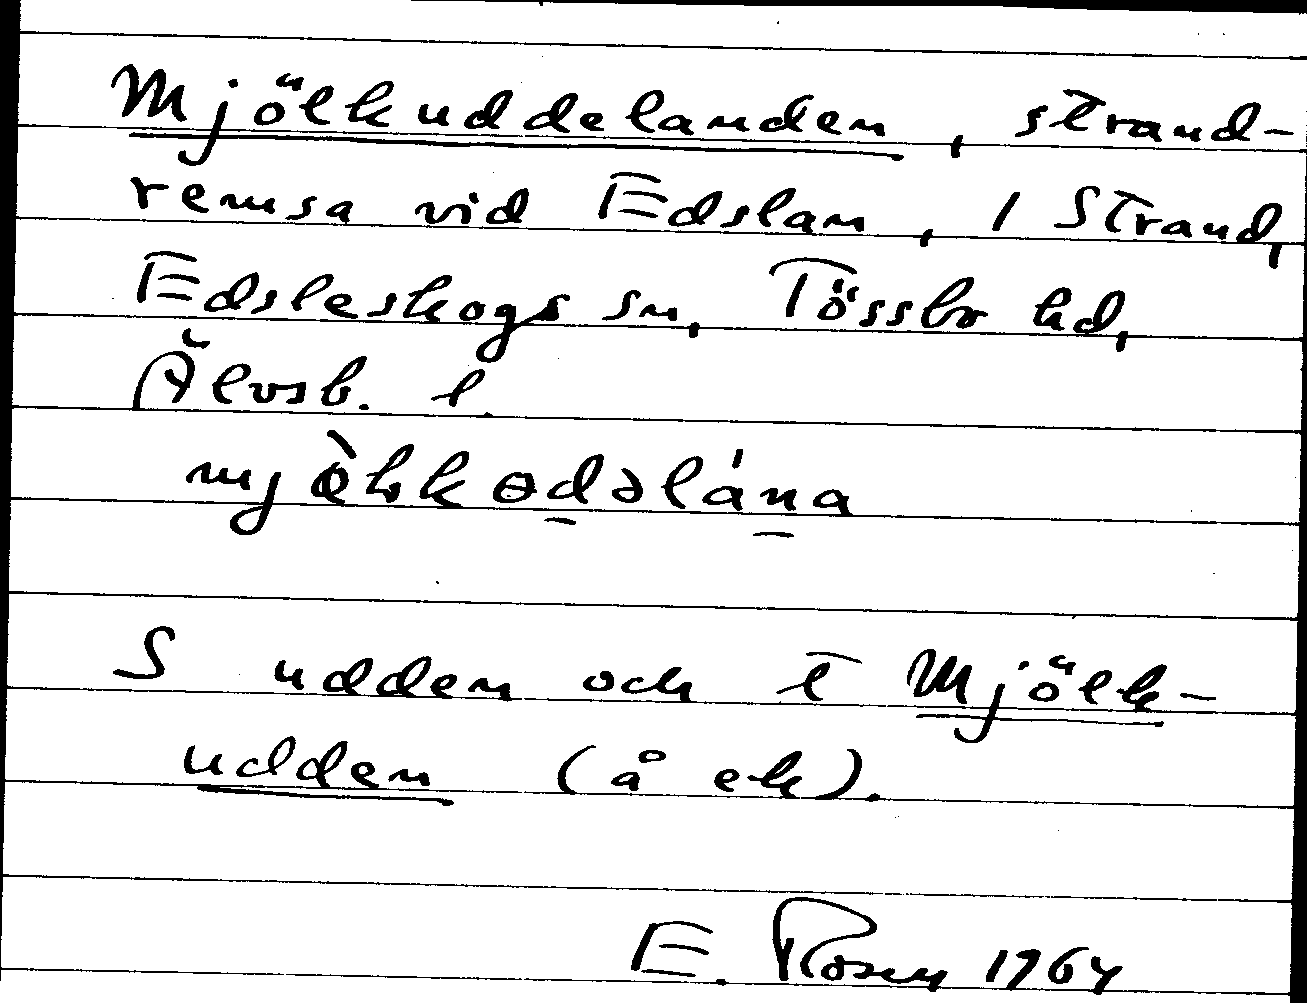 Mjölkuddelanden, strand-
remsa vid Edslan, 1 Strand,
Edsleskogs sn, Tössbo hd,
Älvsb. l.
mjòlkkɵdəlána
S udden och t Mjölk-
udden (å ek).
E. Rosen 1964